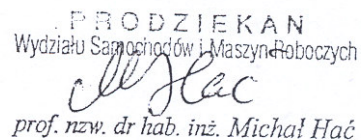 PRODZIEKAN
Wydziału Samochodów i Maszyn Roboczych
M Hać
prof. nzw. dr hab. inż. Michał Hać